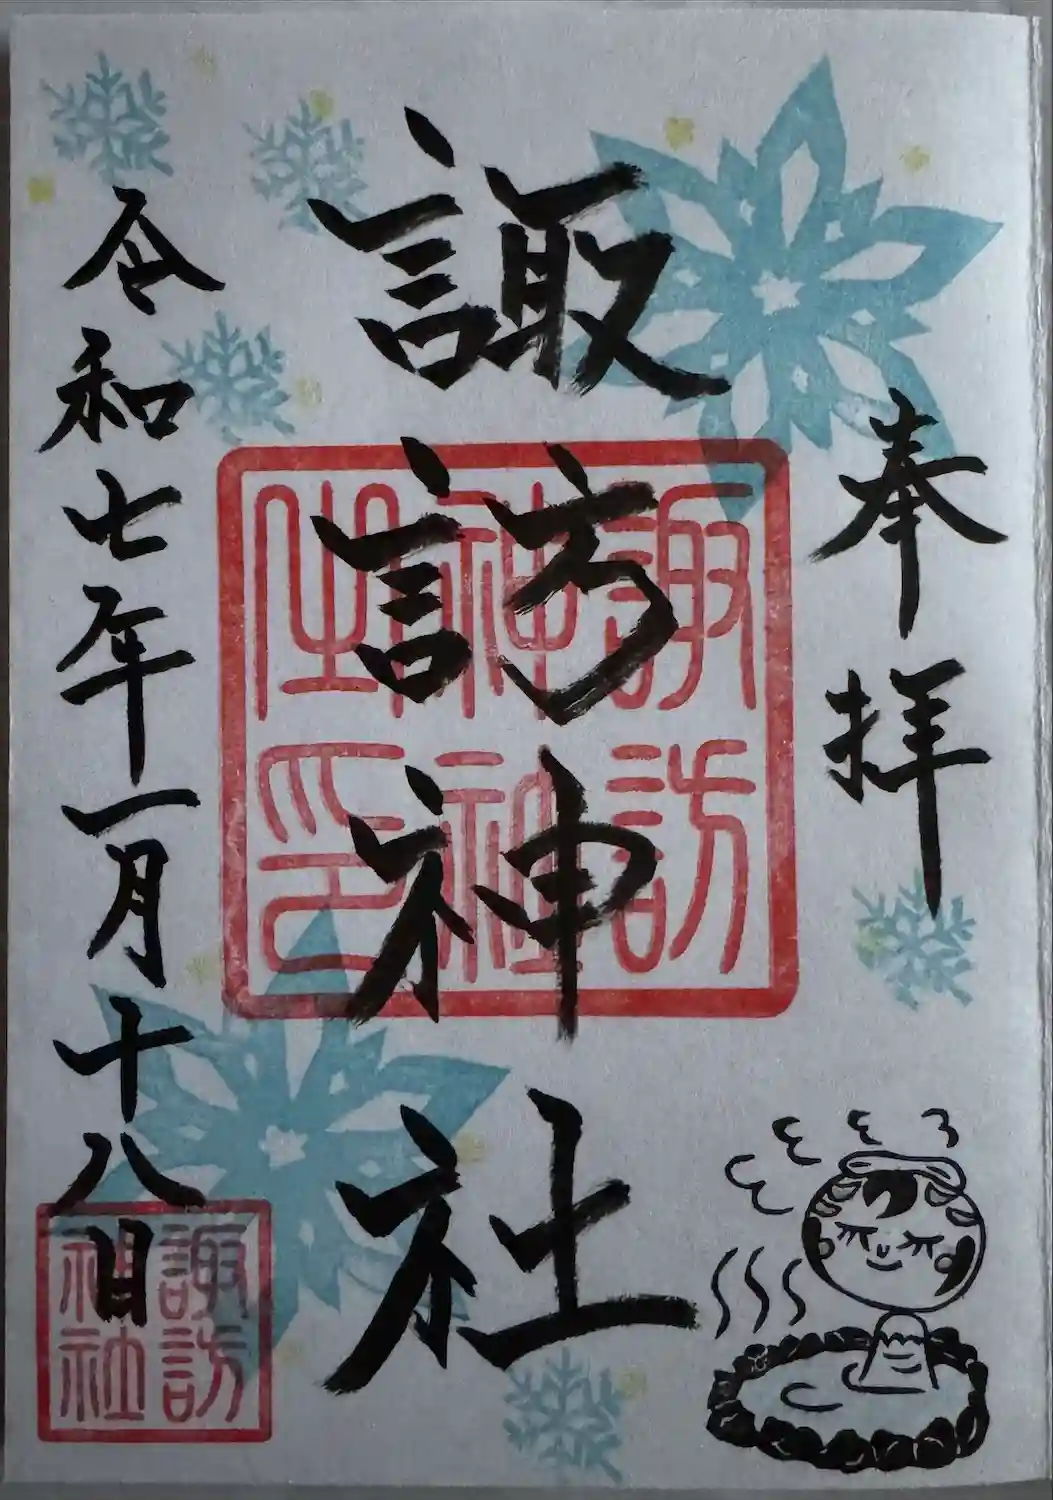 奉拝
諏訪神社
令和七年一月十八日
諏訪神社之印
諏訪神社